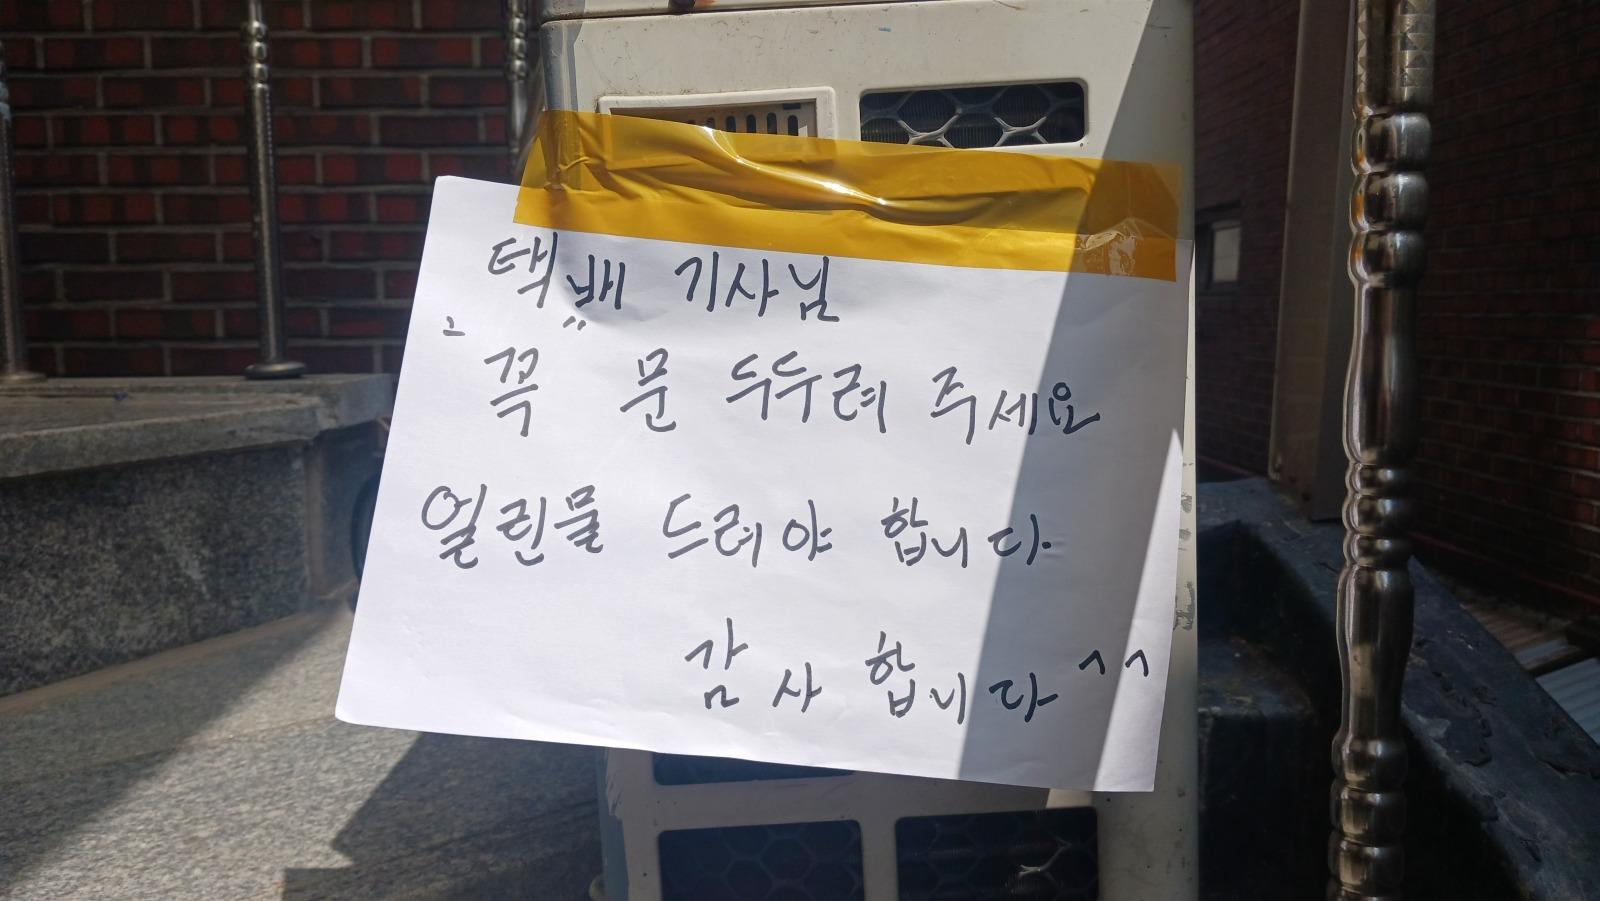 택배 기사님
"꼭" 문 두두려 주세요
얼린물 드려야 합니다.
감사합니다^^